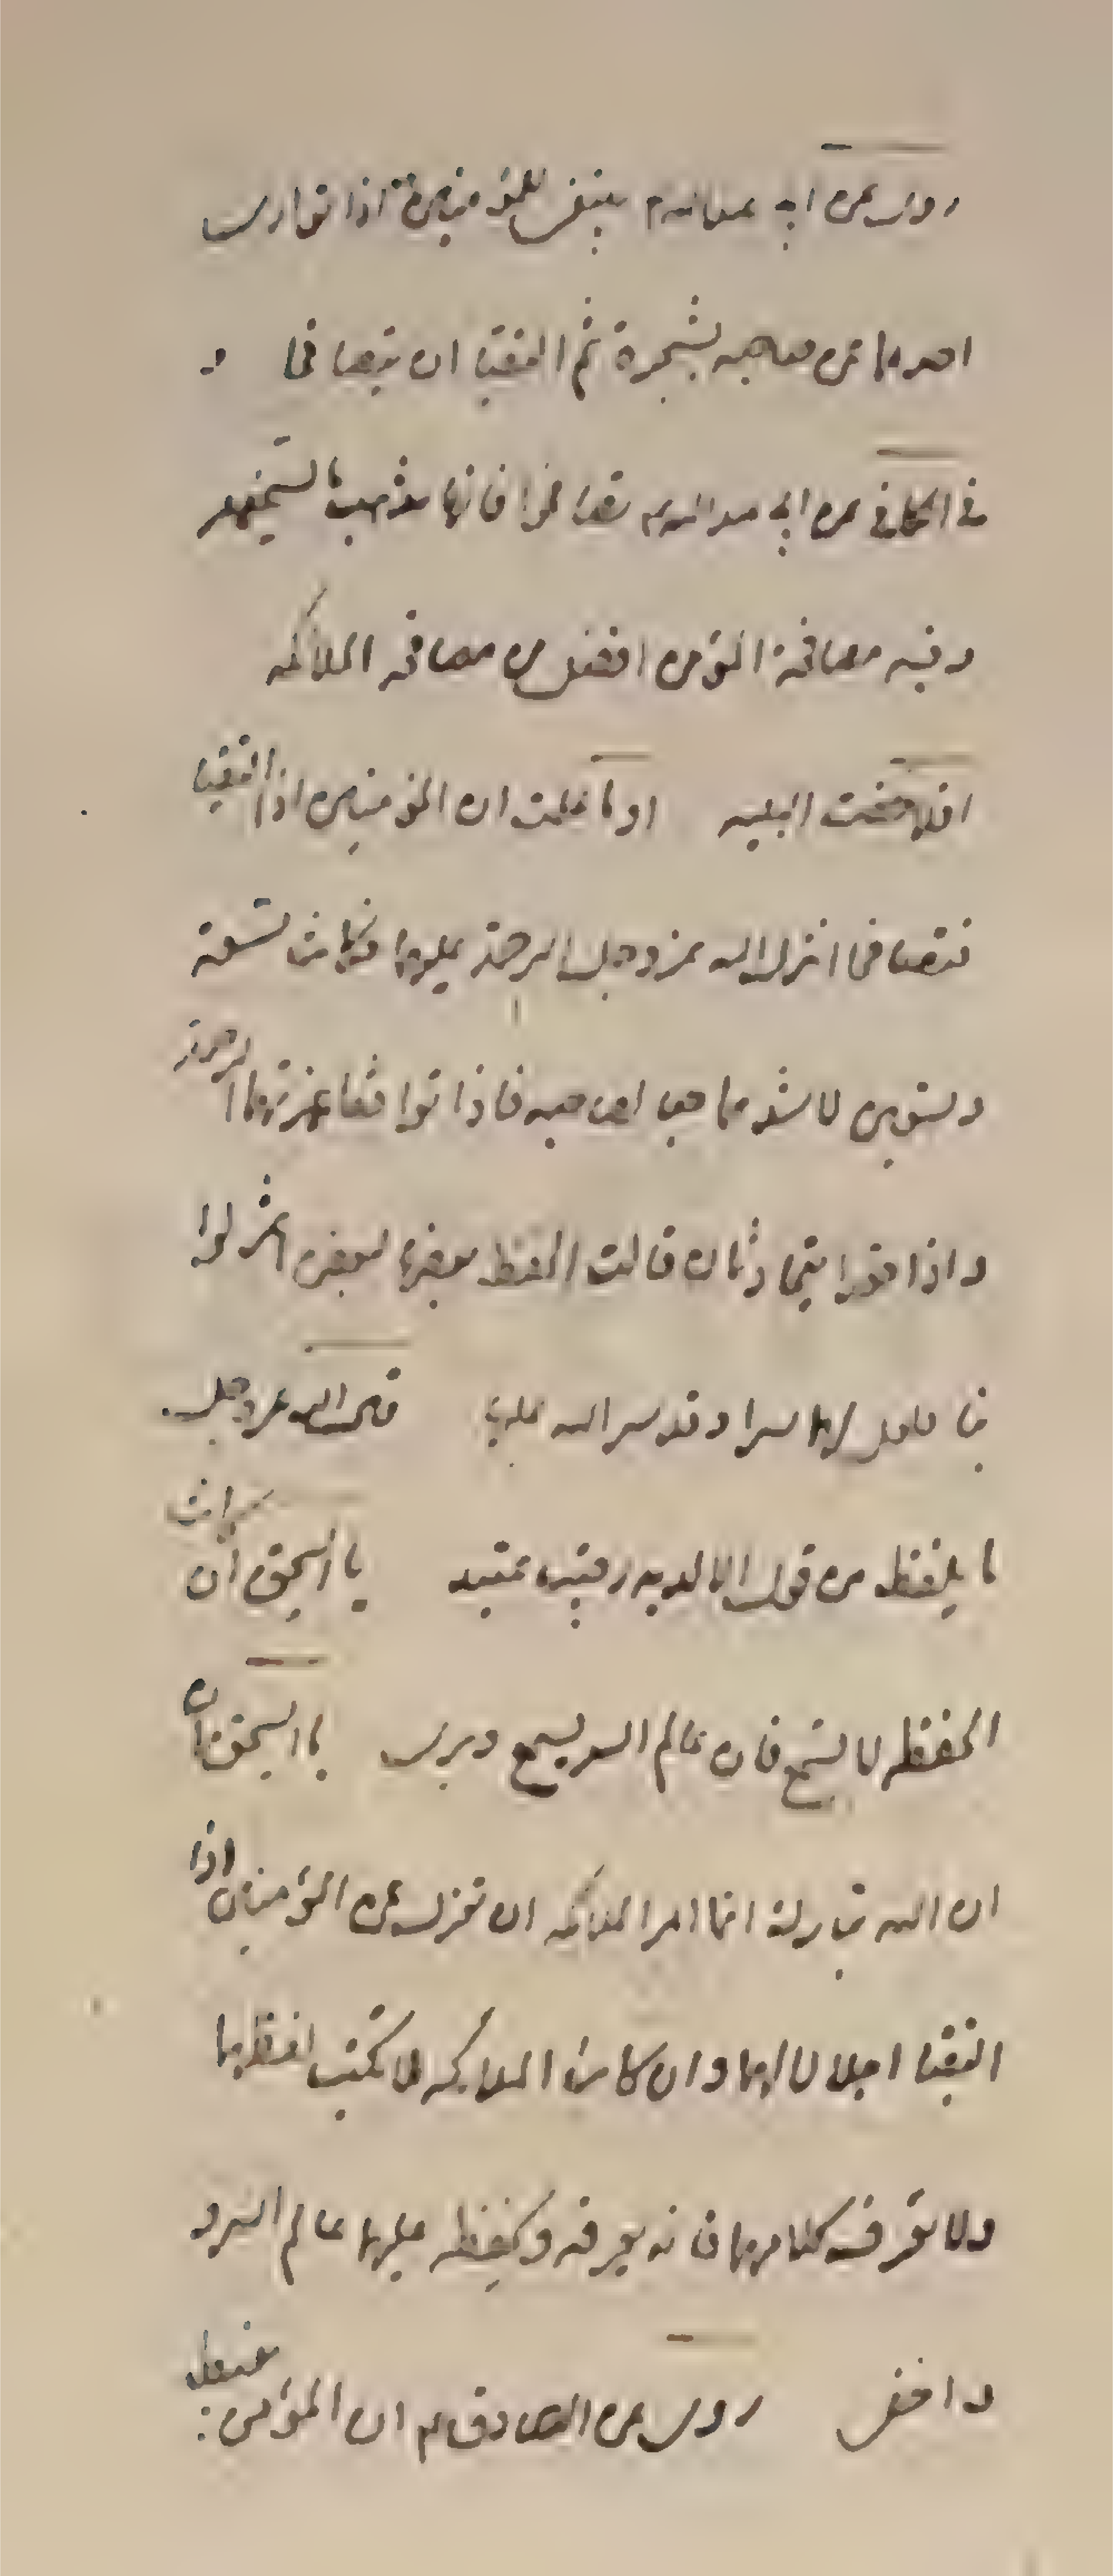 روى عن ابي عبد الله ع ينبغي للمؤمنين اذا توارى
احدهما عن صاحبه بشجرة ثم التقيا ان يتصافحا و
في الكافي عن ابي عبد الله ع تصافحوا فانها تذهب بالسخيمه
وفيه مصافحة المؤمن افضل من مصافحه الملائكه
البليه اوما علمت ان المؤمنين اذا التقيا
فتصافحا انزل الله عز وجل الرحمة عليهما فكانت تسعة
وتسعين لاشدهما حبا لصاحبه فاذا توافقا غمرتهما الرحمة
واذا قعدا يتحادثان قالت الحفظه بعضها لبعض اعتزلوا
بنا فلعل لهما سرا وقد ستر الله عليهما قال الله عز وجل
ما يلفظ من قول الا لديه رقيب عتيد يا اسحق ان كانت
الحفظه لا تسمع فان عالم السر يسمع ويرى يا اسحق فان
ان الله تبارك انما امر الملائكه ان تعزل عن المؤمنين اذا
التقيا اجلالا لهما وان كانت الملائكه لا تكتب لفظهما
ولا تعرف كلامهما فانه يعرفه ويحفظه عليهما عالم السر و
واخفى روى عن الصادق ع ان المؤمن